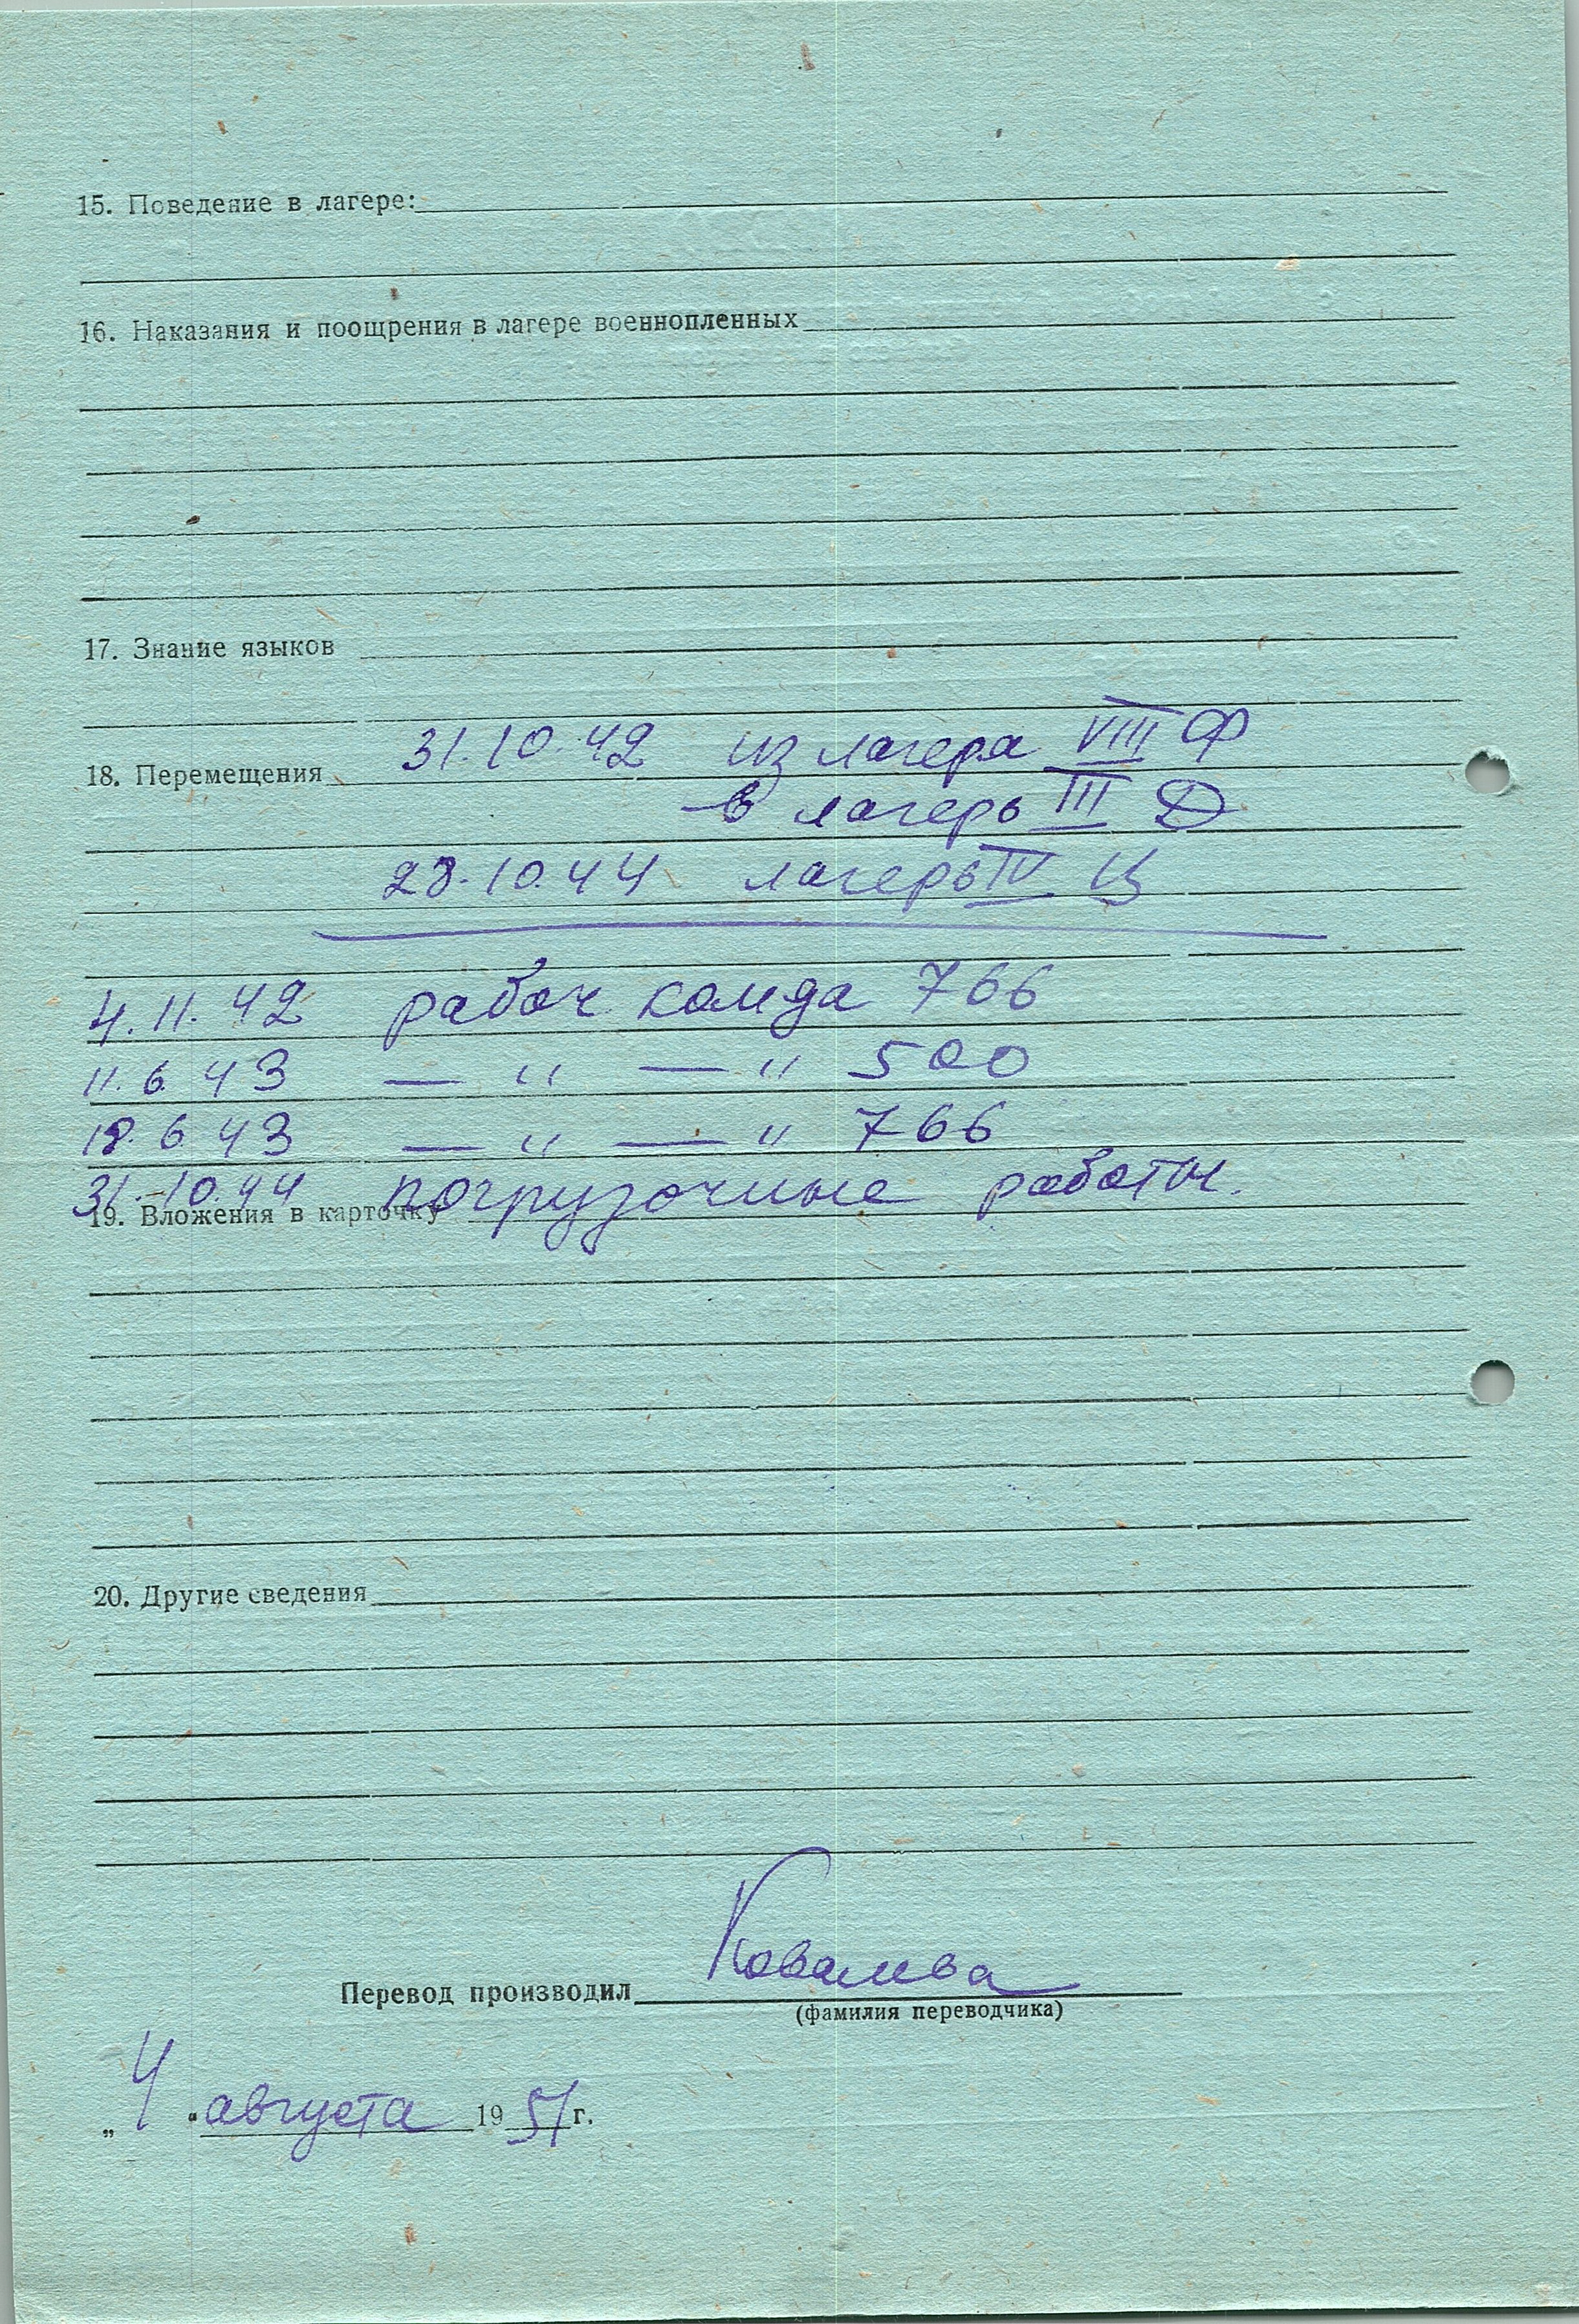 15. Поведение в лагере:
16. Наказания и поощрения в лагере военнопленных
17. Знание языков
18. Перемещения 31.10.42 из лагера VIII Ф
в лагерь III Д
28.10.44 лагерь IV Ц
4.11.42 рабоч. комда 766
11.6.43 — " — " 500
18.6.43 — " — " 766
31.10.44 погрузочные работы.
19. Вложения в карточку
20. Другие сведения
Перевод производил Ковалева
(фамилия переводчика)
„4" августа 1951 г.